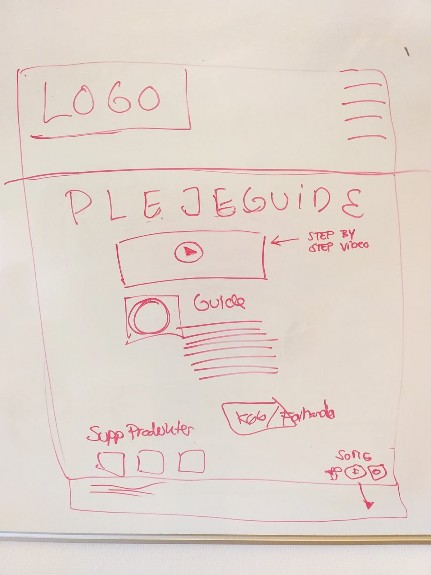 LOGO
PLEJEGUIDE
STEP BY
STEP VIDEO
Guide
Køb/Forhandler
Supp Produkter
SOME